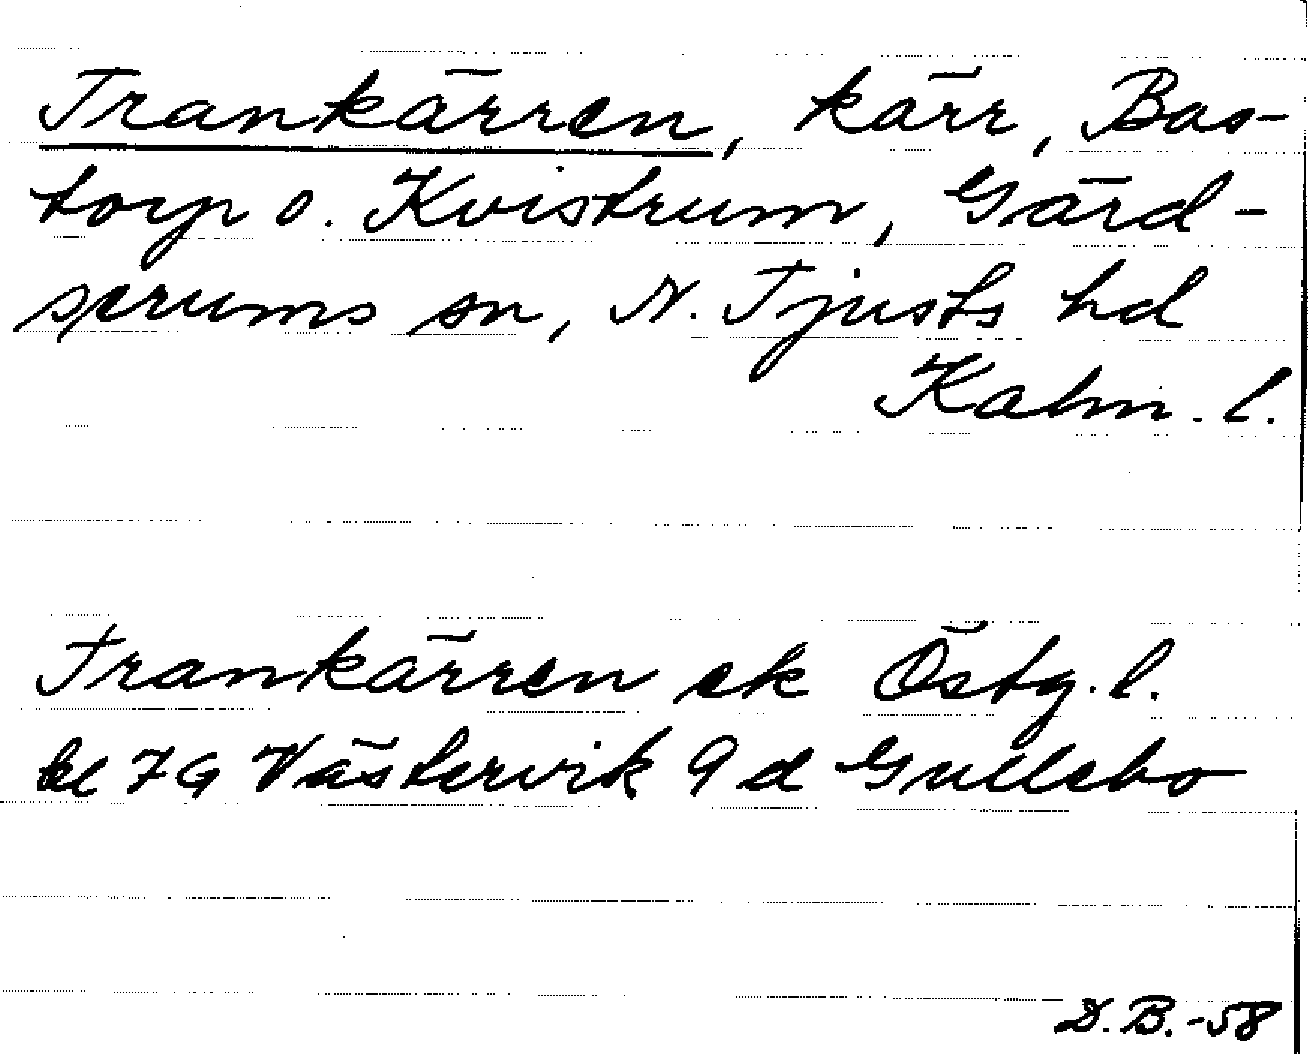 Trankärren, kärr, Bas-
torp o. Kvistrum, Gärd-
serums sn, N. Tjusts hd
Kalm. l.
Trankärren ek Östg. l.
bl 7G Västervik 9 d Gullebo
D. B. -58